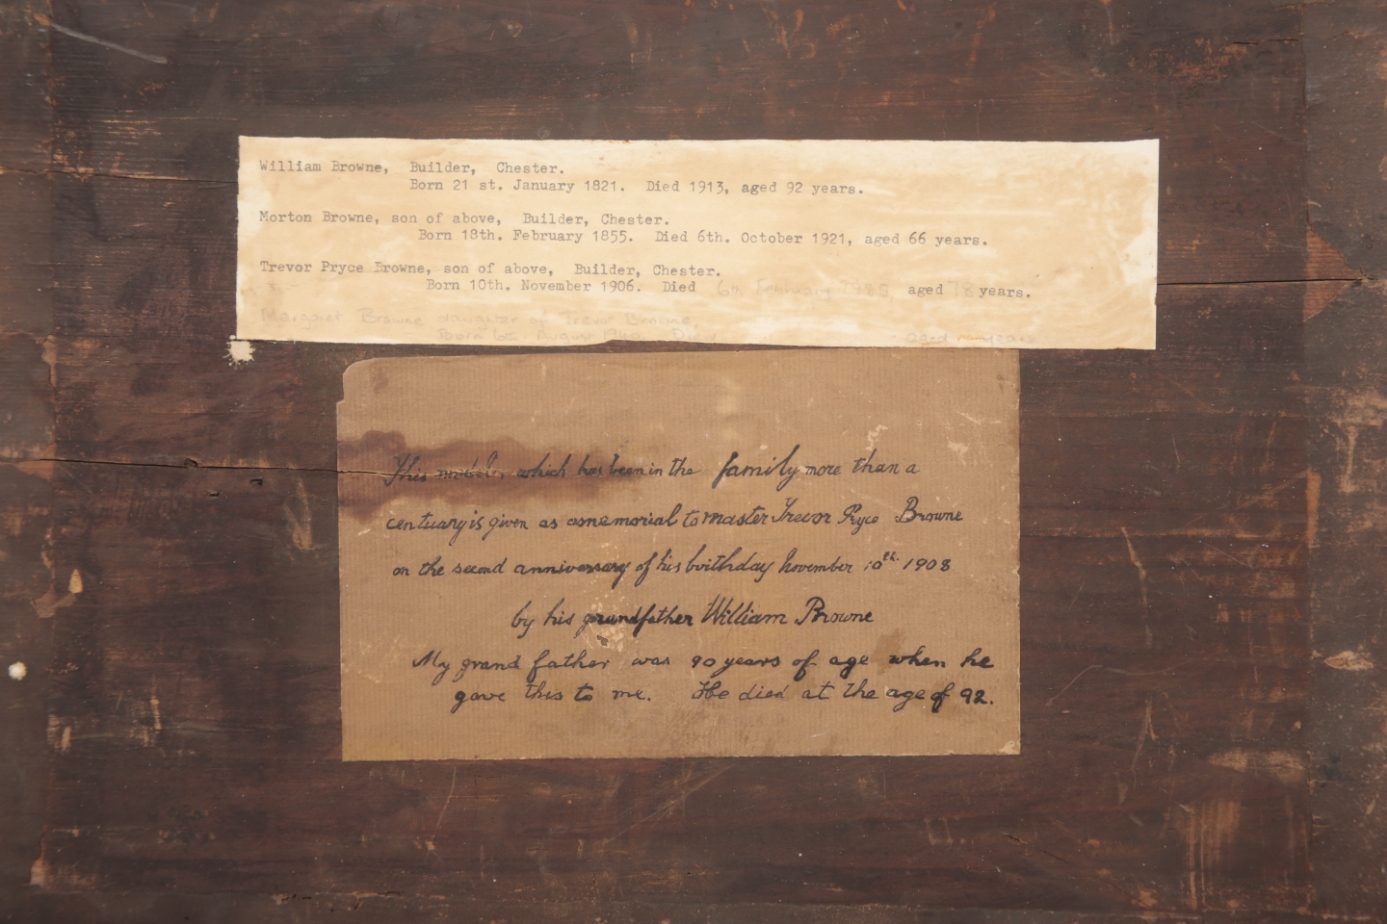 William Browne, Builder, Chester.
Born 21 st. January 1821. Died 1913, aged 92 years.
Morton Browne, son of above, Builder, Chester.
Born 18th. February 1855. Died 6th. October 1921, aged 66 years.
Trevor Pryce Browne, son of above, Builder, Chester.
Born 10th. November 1906. Died 6th February aged 78 years.
Margaret Browne daughter of Trevor Browne,
Born 6th August Died aged years
This model, which has been in the family more than a
centuary is given as a memorial to master Trevor Pryce Browne
on the second anniversary of his birthday November 10th 1908
by his grandfather William Browne
My grand father was 90 years of age when he
gave this to me. He died at the age of 92.